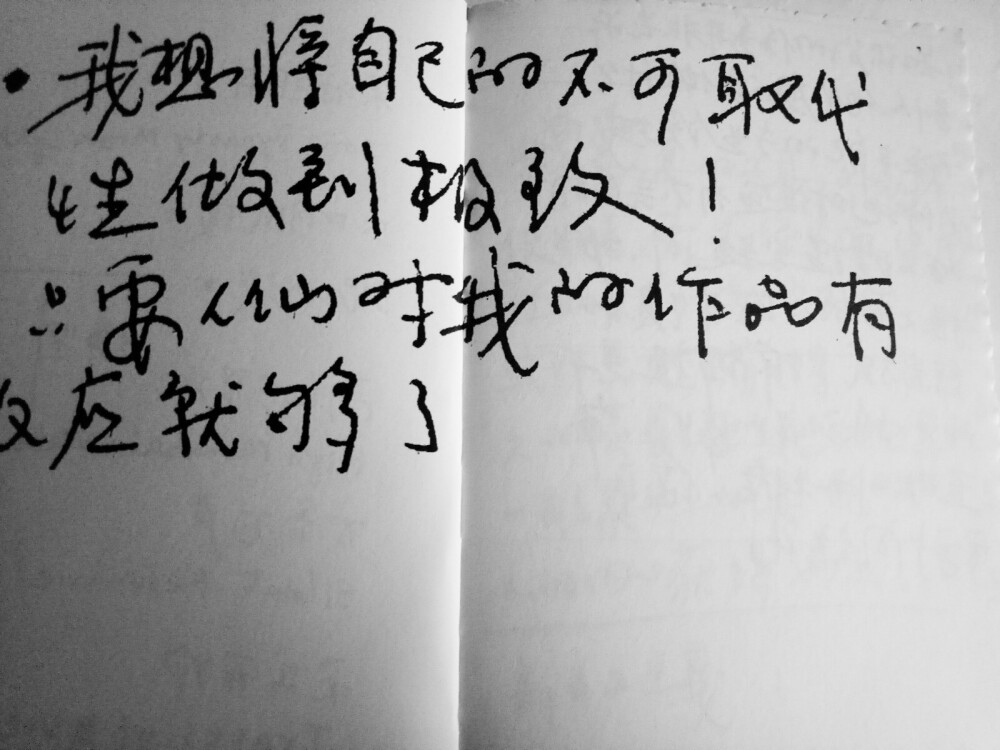 · 我想将自己的不可取代
性做到极致!
只要人们对我的作品有
反应就够了